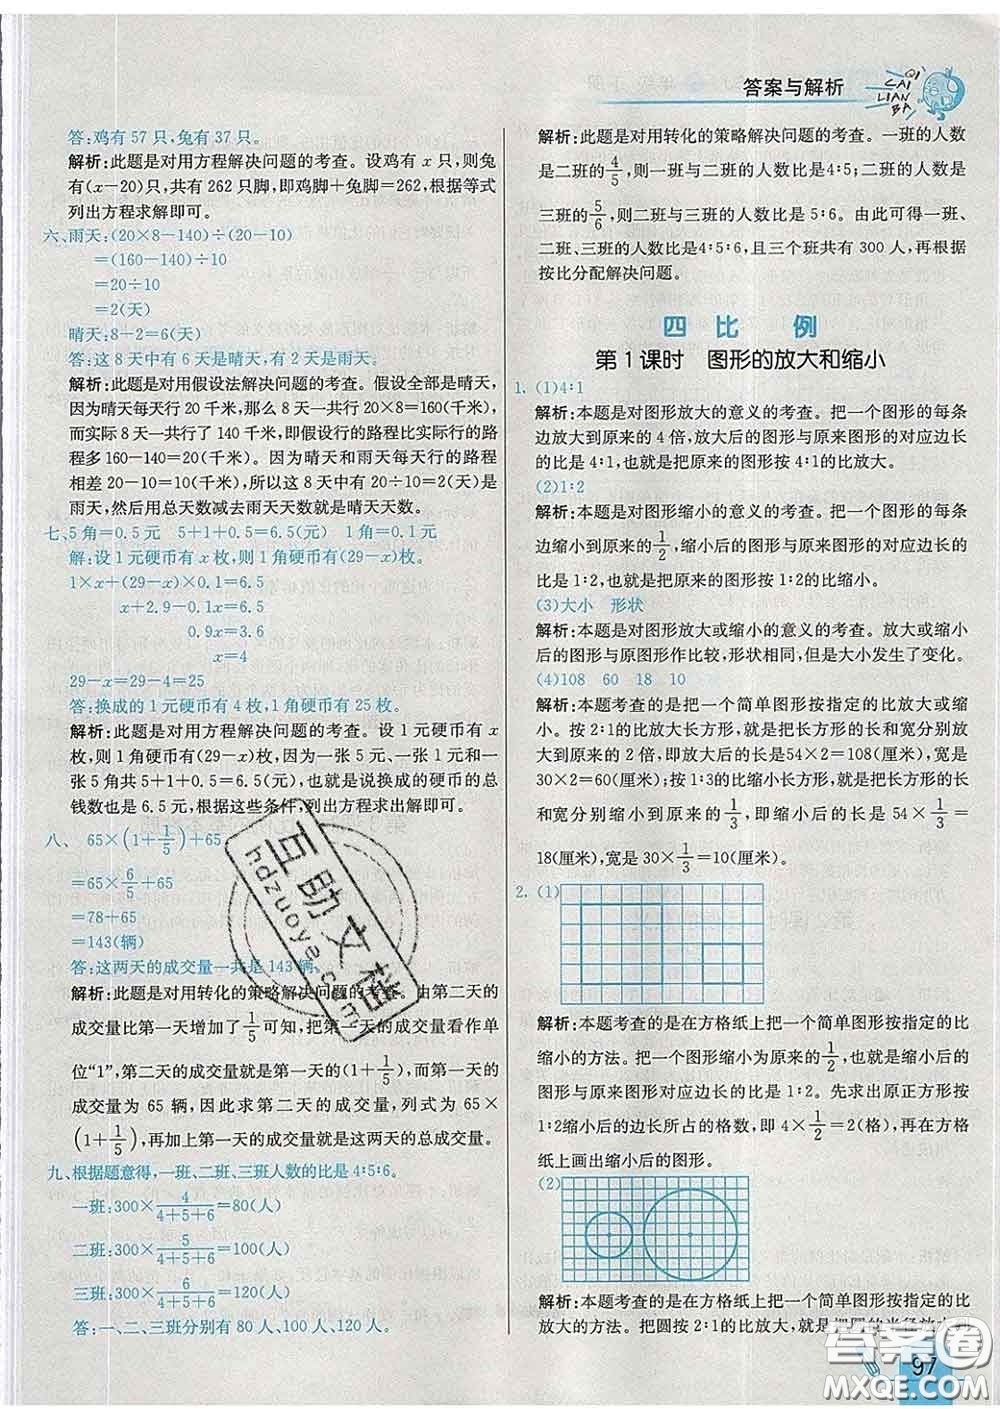 答案与解析
QI CAI LIAN BA
答:鸡有 57 只,兔有 37 只。
解析:此题是对用方程解决问题的考查。设鸡有 x 只,则兔
有(x－20)只,共有 262 只脚,即鸡脚＋兔脚＝262,根据等式
列出方程求解即可。
六、雨天:(20×8－140)÷(20－10)
＝(160－140)÷10
＝20÷10
＝2(天)
晴天:8－2＝6(天)
答:这 8 天中有 6 天是晴天,有 2 天是雨天。
解析:此题是对用假设法解决问题的考查。假设全部是晴天,
因为晴天每天行 20 千米,那么 8 天一共行 20×8＝160(千米),
而实际 8 天一共行了 140 千米,即假设行的路程比实际行的路
程多 160－140＝20(千米)。因为晴天和雨天每天行的路程
相差 20－10＝10(千米),所以这 8 天中有 20÷10＝2(天)是
雨天,然后用总天数减去雨天天数就是晴天天数。
七、5 角＝0.5 元　5＋1＋0.5＝6.5(元)　1 角＝0.1 元
解:设 1 元硬币有 x 枚,则 1 角硬币有(29－x)枚。
1×x＋(29－x)×0.1＝6.5
x＋2.9－0.1x＝6.5
0.9x＝3.6
x＝4
29－x＝29－4＝25
答:换成的 1 元硬币有 4 枚,1 角硬币有 25 枚。
解析:此题是对用方程解决问题的考查。设 1 元硬币有 x
枚,则 1 角硬币有(29－x)枚。因为一张 5 元、一张 1 元和一
张 5 角共是 6.5 元,也就是说换成的硬币的总
钱数也是 6.5 元,根据这些条件,列出方程求出解即可。
八、 65×(1＋1/5)＋65
＝65×6/5＋65
＝78＋65
＝143(辆)
答:这两天的成交量一共是 143 辆。
解析:此题是对用转化的策略解决问题的考查。由第二天的
成交量比第一天增加了1/5可知,把第一天的成交量看作单
位“1”,第二天的成交量就是第一天的(1＋1/5),而第一天的
成交量为 65 辆,因此求第二天的成交量,列式为 65×
(1＋1/5),再加上第一天的成交量就是这两天的总成交量。
九、根据题意得,一班、二班、三班人数的比是 4∶5∶6。
一班:300×4/(4＋5＋6)＝80(人)
二班:300×5/(4＋5＋6)＝100(人)
三班:300×6/(4＋5＋6)＝120(人)
答:一、二、三班分别有 80 人、100 人、120 人。
解析:此题是对用转化的策略解决问题的考查。一班的人数
是二班的4/5,则一班与二班的人数比是 4∶5;二班的人数是
三班的5/6,则二班与三班的人数比是 5∶6。由此可得一班、
二班、三班的人数比是 4∶5∶6,且三个班共有 300 人,再根据
按比分配解决问题。
四 比 例
第 1 课时　图形的放大和缩小
1. (1)4∶1
解析:本题是对图形放大的意义的考查。把一个图形的每条
边放大到原来的 4 倍,放大后的图形与原来图形的对应边长
的比是 4∶1,也就是把原来的图形按 4∶1的比放大。
(2)1∶2
解析:本题是对图形缩小的意义的考查。把一个图形的每条
边缩小到原来的1/2,缩小后的图形与原来图形的对应边长的
比是 1∶2,也就是把原来的图形按 1∶2的比缩小。
(3)大小　形状
解析:本题是对图形放大或缩小的意义的考查。放大或缩小
后的图形与原图形作比较,形状相同,但大小发生了变化。
(4)108　60　18　10
解析:本题考查的是把一个简单图形按指定的比放大或缩
小。按 2∶1的比放大长方形,就是把长方形的长和宽分别放
大到原来的 2 倍,即放大后的长是54×2＝108(厘米),宽是
30×2＝60(厘米);按 1∶3的比缩小长方形,就是把长方形的长
和宽分别缩小到原来的1/3,即缩小后的长是 54×1/3＝
18(厘米),宽是 30×1/3＝10(厘米)。
2. (1)
解析:本题考查的是在方格纸上把一个简单图形按指定的比
缩小的方法。把一个图形缩小为原来的1/2,也就是缩小后的
图形与原来图形对应边长的比是 1∶2。先求出原正方形按
1∶2缩小后的边长所占的格数,即 4×1/2＝2(格),再在方格
纸上画出缩小后的图形。
(2)
解析:本题考查的是在方格纸上把一个简单图形按指定的比
放大的方法。把圆按 2∶1的比放大,就是把圆的半径放大到
97
互助文档
hdzuoye.com
答案圈
MXQE.COM